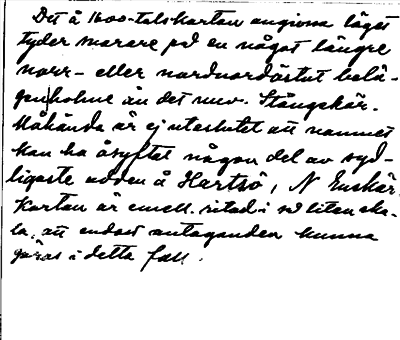 Det å 1600-talskartan angivna läget
tyder snarare på en något längre
norr- eller nordnordöstut belä-
genholme än det nuv. Stångskär.
Måhända är ej uteslutet att namnet
kan ha åsyftat någon del av syd-
ligaste udden å Hartsö, N Enskär.
Kartan är emell. ritad i så liten ska-
la, att endast antaganden kunna
göras i detta fall.